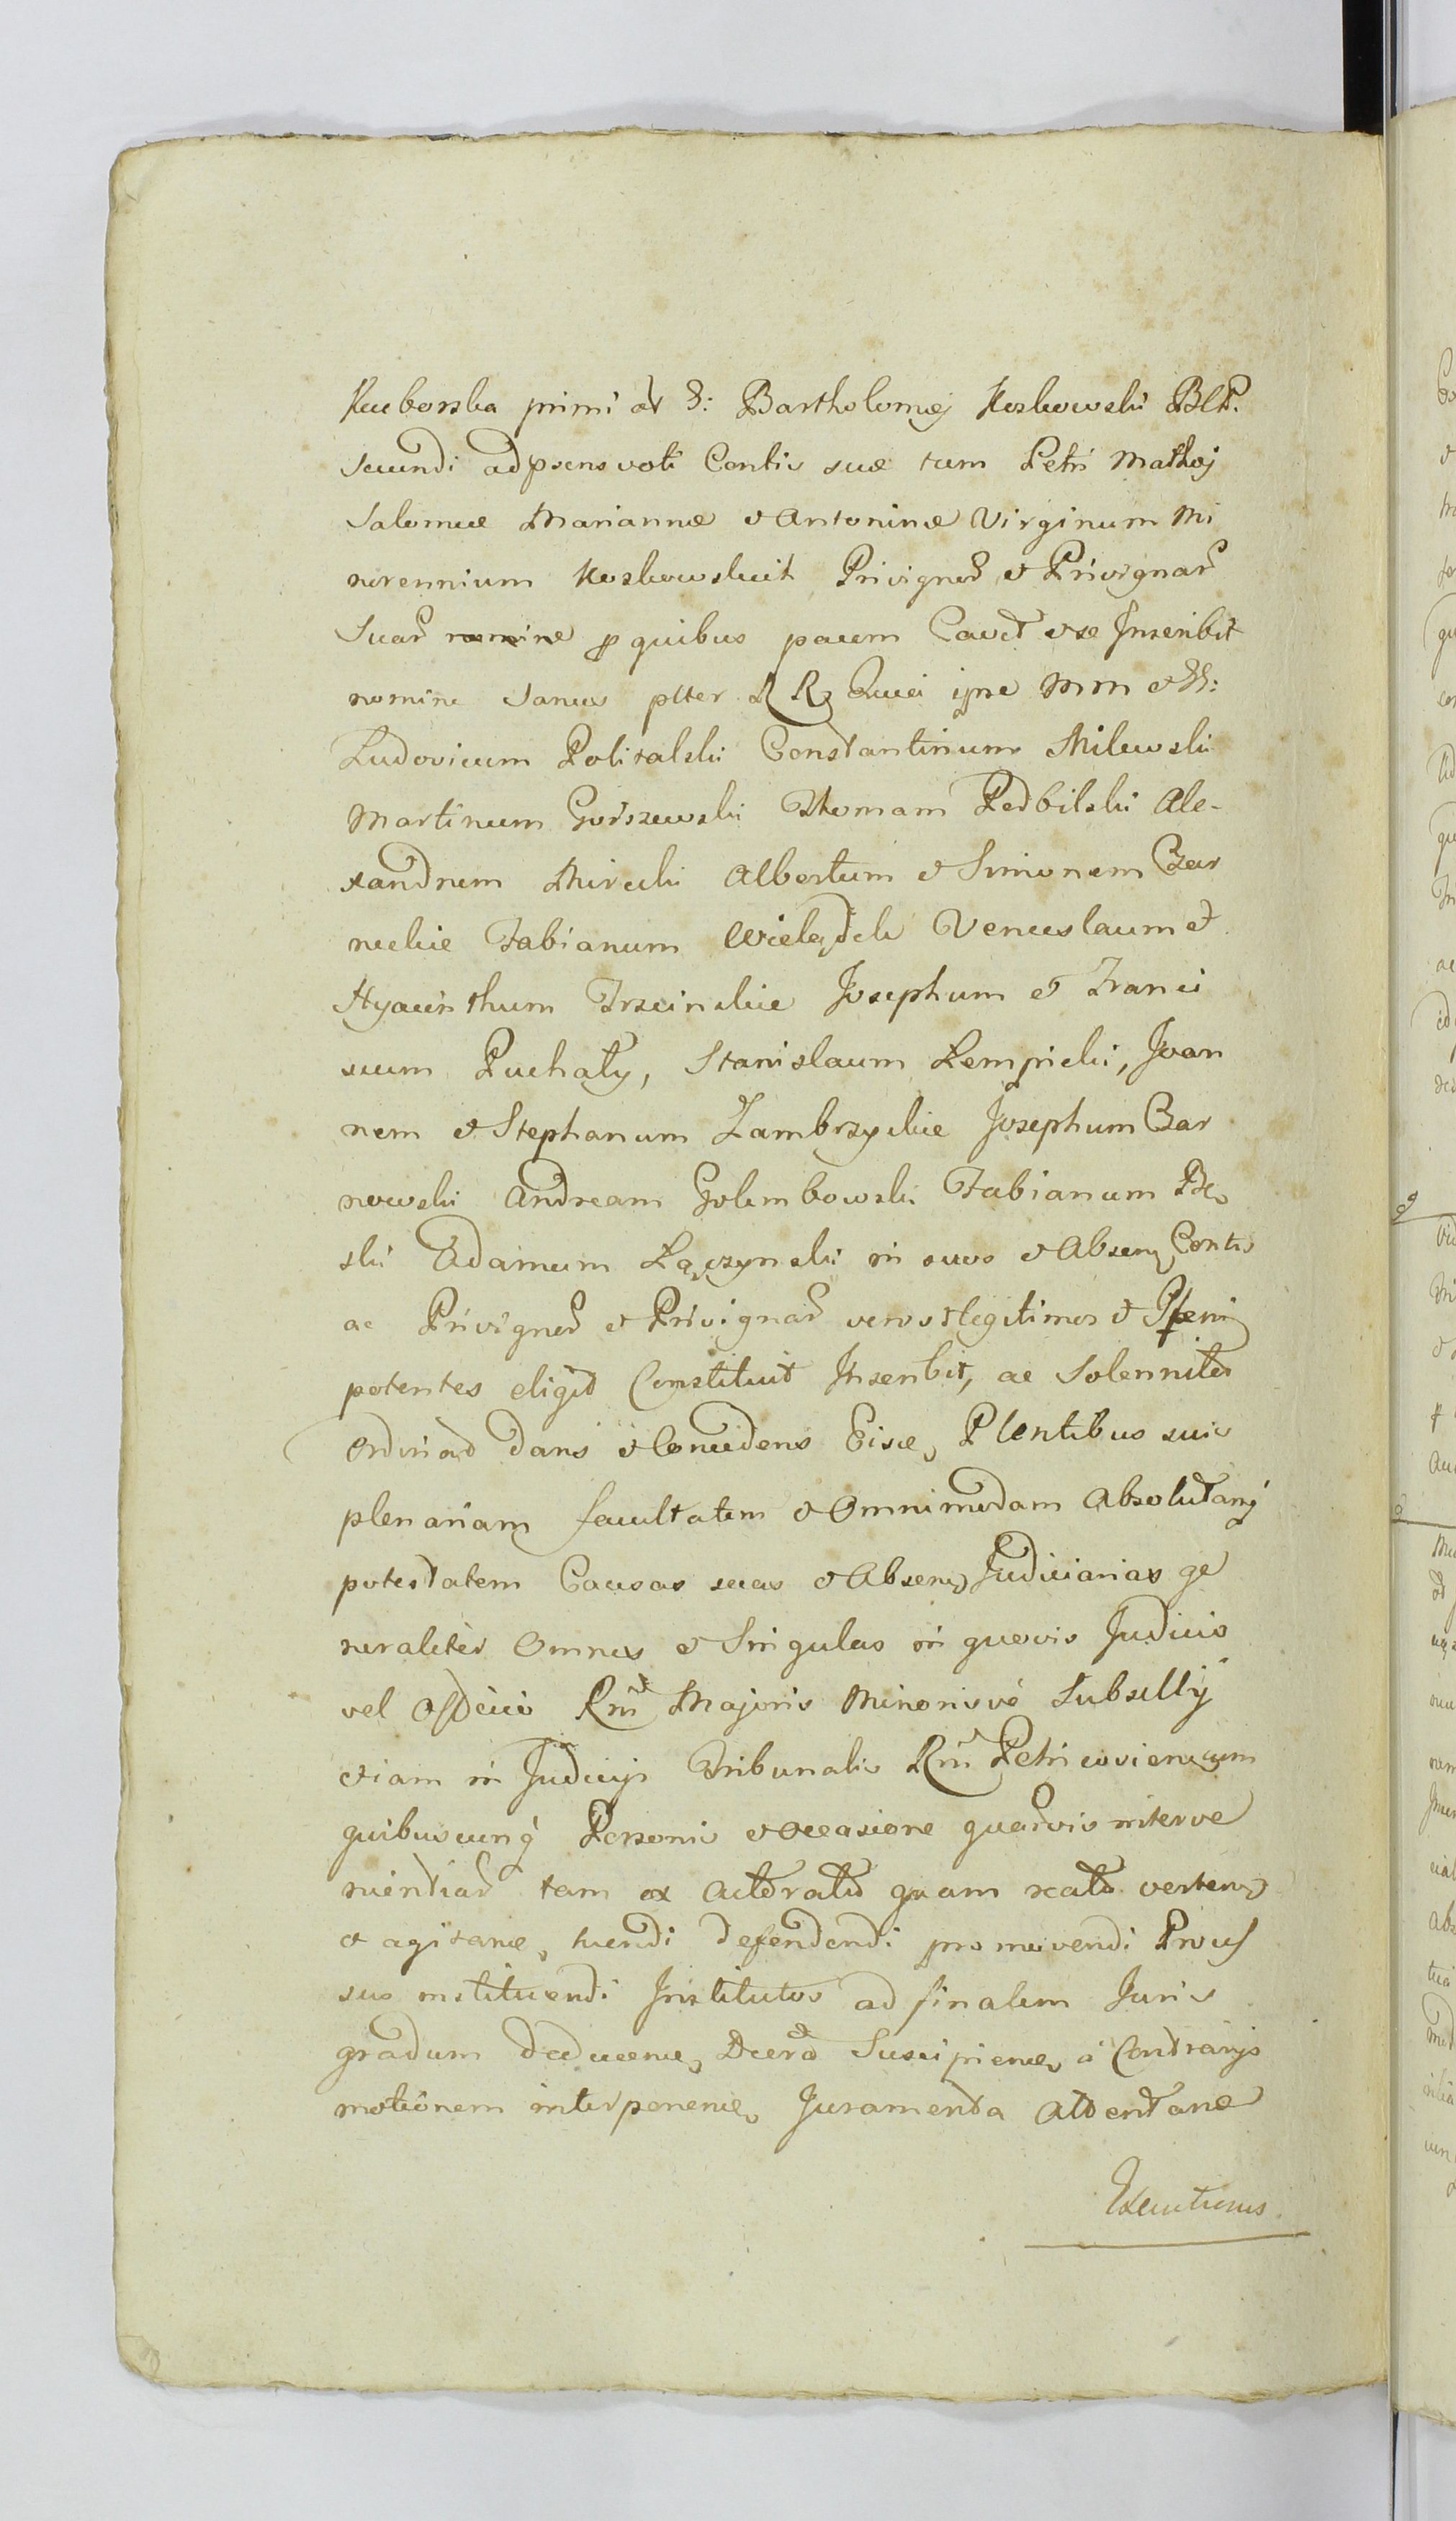 Kuborska primi et G: Bartholomæj Koskowski B C P.
secundi ad præsens voti Contis suæ tum Petri Mathæj
Salomeæ Mariannæ et Antoninæ Virginum Mi
norennium Koskowskich Privignor et Privignar
suar nomine p quibus pacem Cavet et se Inscribit
nomine tanus plter R Rz Quci ipse Mm et GG:
Ludovicum Politalski Constantinum Milewski
Martinum Gorszewski Thomam Podbilski Ale-
xandrum Mirecki Albertum et Simonem Czar
neckie Fabianum Wielądek Venceslaum et
Hyacinthum Trzcinskie Josephum et Franci
scum Puchały, Stanislaum Lempicki, Joan
nem et Stephanum Zambrzyckie Josephum Czar
nowski Andream Golembowski Fabianum
ski Adamum Łączynski in suos et Absen Contis
ac Privignor et Privignar veros legitimos et Pleni
potentes eligit Constituit Inscribit, ac Solenniter
Ordinat dans et Concedens Eisd Plentibus suis
plenariam facultatem et Omnimodam Absolutamq
potestatem Causas suas et Absen Judiciarias ge
neraliter Omnes et Singulas in quovis Judicio
vel Officio Rni Majoris Minorisve Subsellij
etiam in Judicijs Tribunalis Rni Petricovien cum
quibuscunq Personis et occasione quarvis interve
nientiar tam ex Acttoratu quam reatu verten
et agitan, tuendi defendendi promovendi Proces
sus instituendi Institutos ad finalem Juris
gradum deducen, Decra Suscipien, a Contrarijs
motionem interponen, Juramenta Attentan
Executiones.